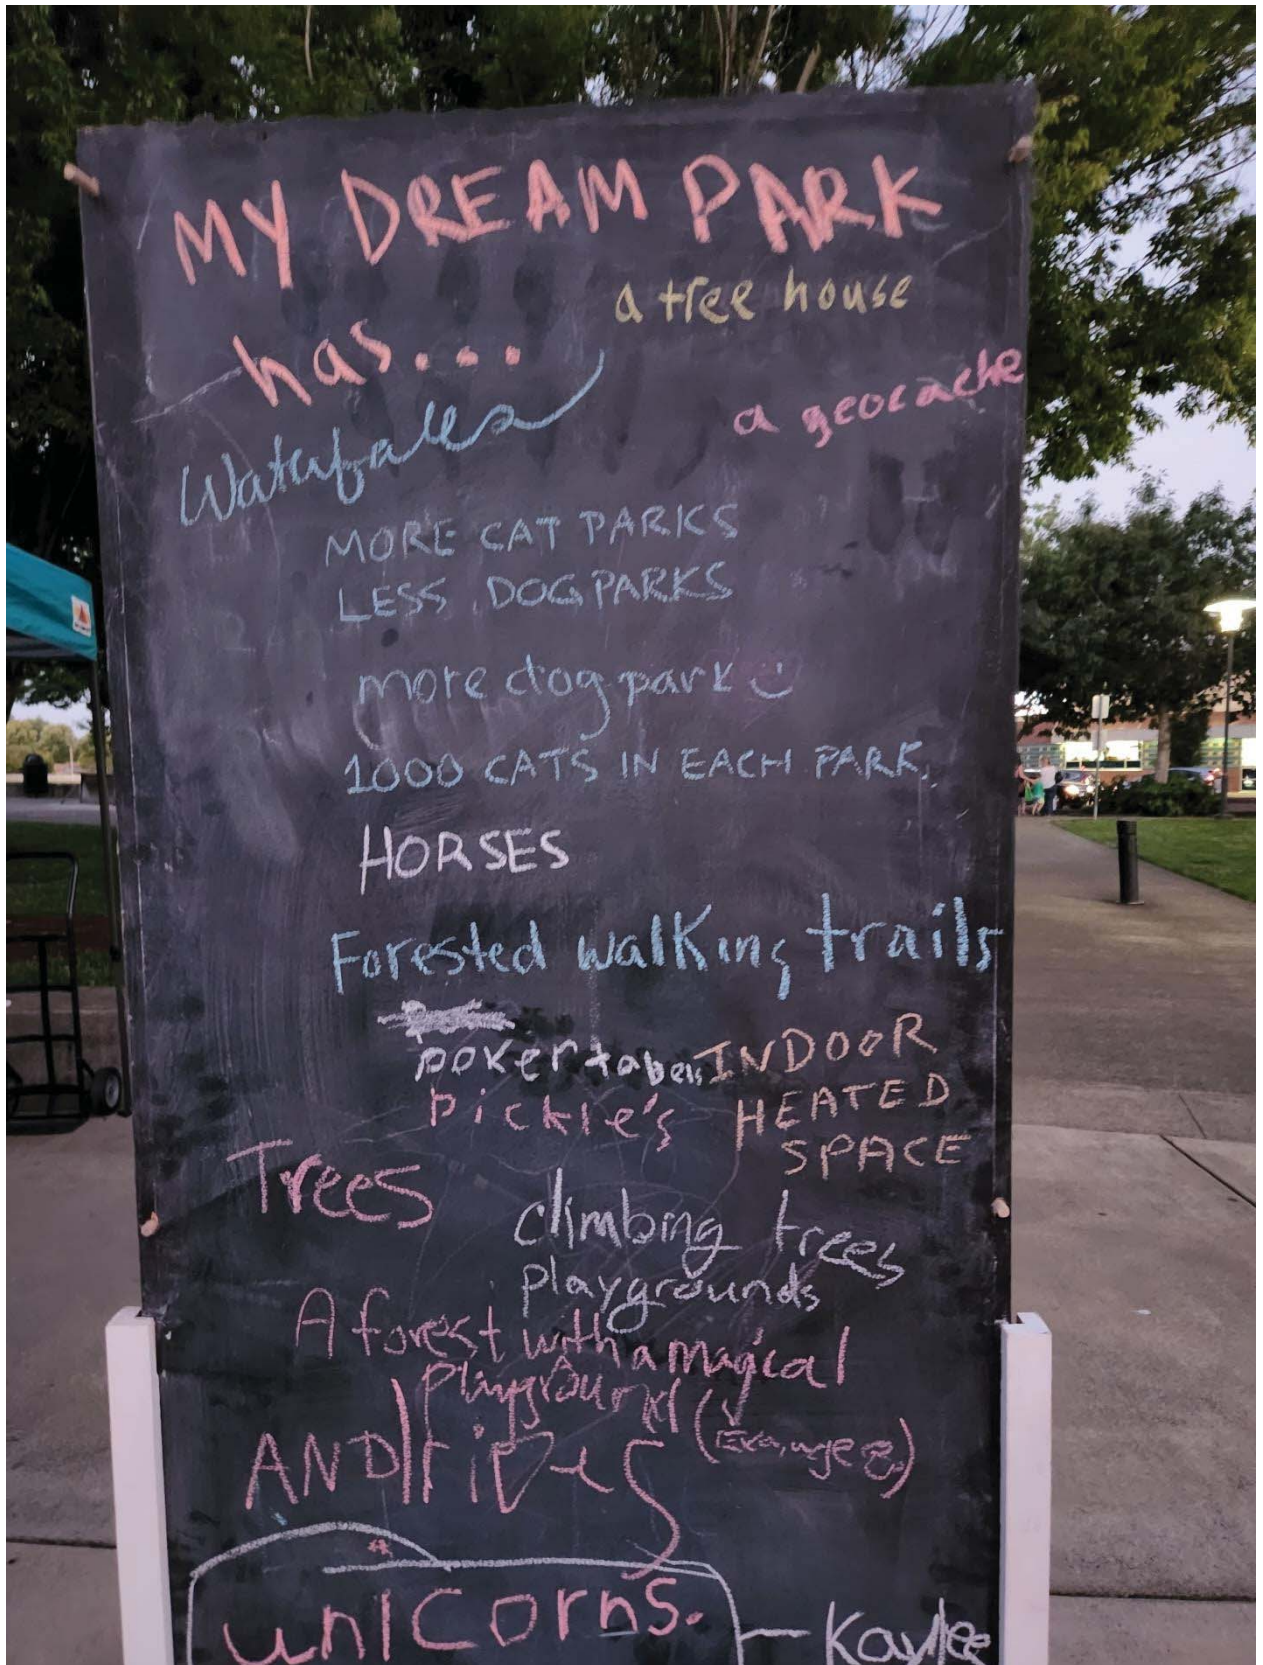 MY DREAM PARK
has...
a tree house
a geocache
Waterfalls
MORE CAT PARKS
LESS DOG PARKS
more dog park
1000 CATS IN EACH PARK
HORSES
Forested walking trails
poker tabels
INDOOR
HEATED
SPACE
pickle's
Trees
climbing trees
playgrounds
A forest with a magical
playground
AND
unicorns.
Kaylee